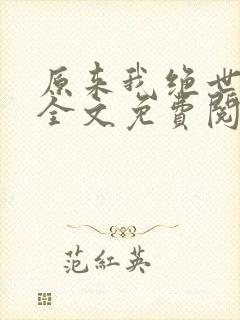 原来我绝世
全文免費閱
范紅英